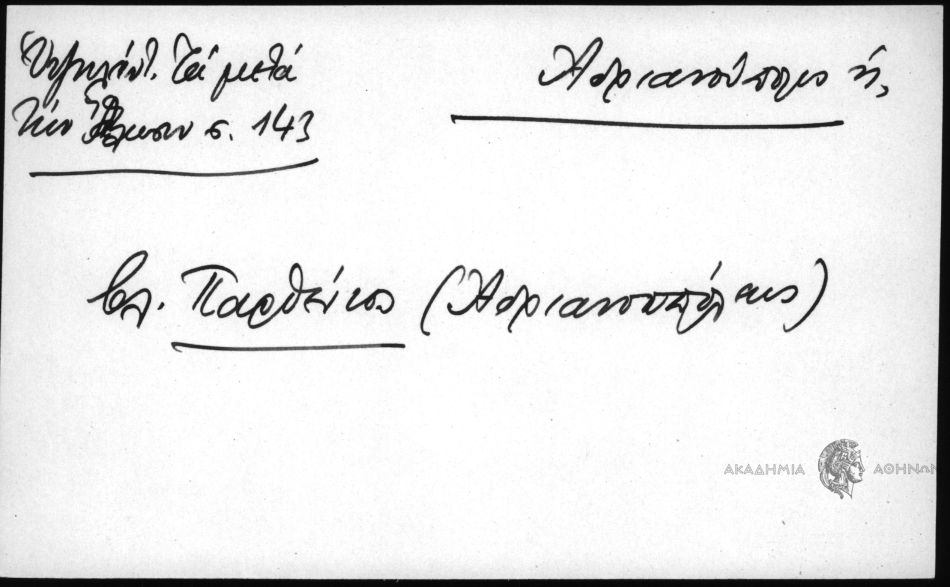 Ὑψηλάντ. Τά μετά
τήν Ἅλωσιν σ. 143
Ἀδριανούπολις ἡ,
βλ. Παρθένιος (Ἀδριανουπόλεως)
ΑΚΑΔΗΜΙΑ ΑΘΗΝΩΝ